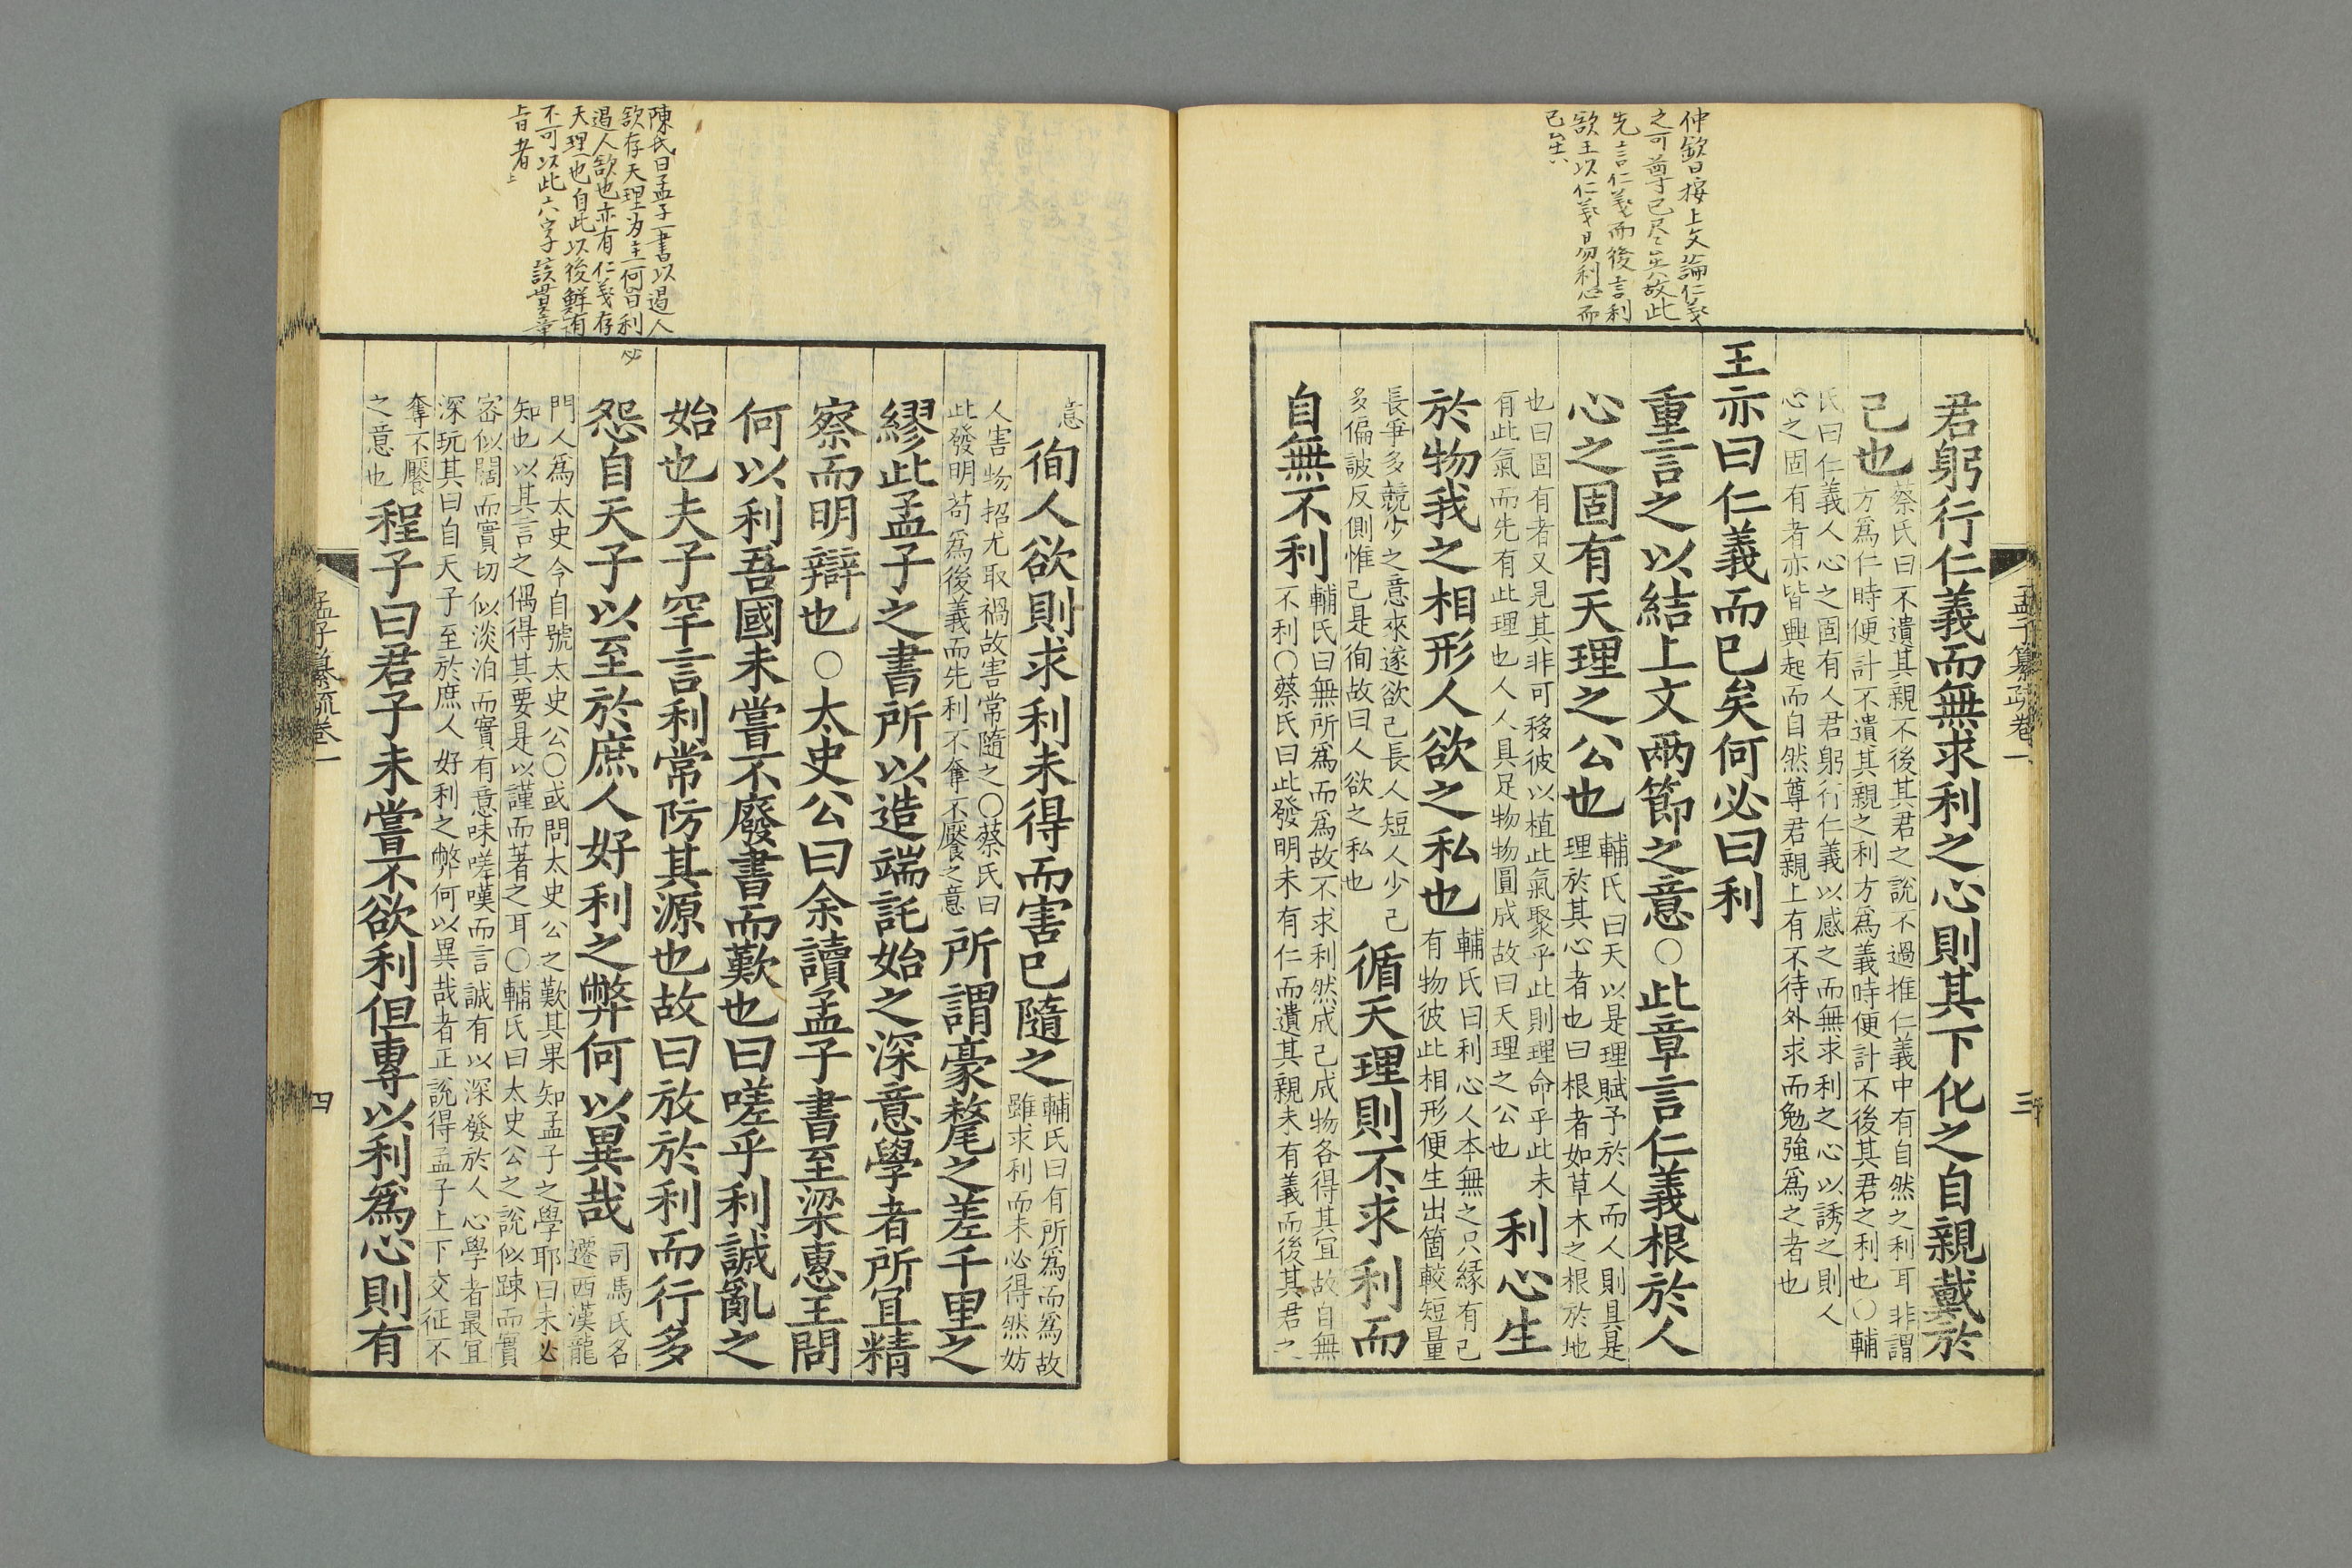 仲欽曰按上文論仁義
之可尊已尽矣故此
先言仁義而後言利
欲王以仁義易利心而
已矣
君躬行仁義而無求利之心則其下化之自親戴於
己也
蔡氏曰不遺其親不後其君之說不過推仁義中有自然之利耳非謂
方爲仁時便計不遺其親之利方爲義時便計不後其君之利也○輔
氏曰仁義人心之固有人君躬行仁義以感之而無求利之心以誘之則人
心之固有者亦皆興起而自然尊君親上有不待外求而勉強爲之者也
王亦曰仁義而已矣何必曰利
重言之以結上文兩節之意○此章言仁義根於人
心之固有天理之公也
輔氏曰天以是理賦予於人而人則具是
理於其心者也曰根者如草木之根於地
也曰固有者又見其非可移彼以植此氣聚乎此則理命乎此未
有此氣而先有此理也人人具足物物圓成故曰天理之公也
利心生
於物我之相形人欲之私也
輔氏曰利心人本無之只緣有己
有物彼此相形便生出箇較短量
長爭多競少之意來遂欲己長人短人少己
多偏詖反側惟己是徇故曰人欲之私也
循天理則不求利而
自無不利
輔氏曰無所爲而爲故不求利然成己成物各得其宜故自無
不利○蔡氏曰此發明未有仁而遺其親未有義而後其君之
孟子纂疏卷一
三
陳氏曰孟子一書以遏人
欲存天理为主何必曰利
遏人欲也亦有仁義存
天理也自此以後鮮有
不可以此六字該貫章
旨者
意
徇人欲則求利未得而害已隨之
輔氏曰有所爲而爲故
雖求利而未必得然妨
人害物招尤取禍故害常隨之○蔡氏曰
此發明苟爲後義而先利不奪不饜之意
所謂豪釐之差千里之
繆此孟子之書所以造端託始之深意學者所宜精
察而明辯也○太史公曰余讀孟子書至梁惠王問
何以利吾國未嘗不廢書而歎也曰嗟乎利誠亂之
始也夫子罕言利常防其源也故曰放於利而行多
怨自天子以至於庶人好利之弊何以異哉
司馬氏名
遷西漢龍
門人爲太史令自號太史公○或問太史公之歎其果知孟子之學耶曰未必
知也以其言之偶得其要是以謹而著之耳○輔氏曰太史公之說似踈而實
密似闊而實切似淡泊而實有意味嗟嘆而言誠有以深發於人心學者最宜
深玩其曰自天子至於庶人好利之弊何以異哉者正說得孟子上下交征不
奪不饜
之意也
程子曰君子未嘗不欲利但專以利爲心則有
孟子纂疏卷一
四